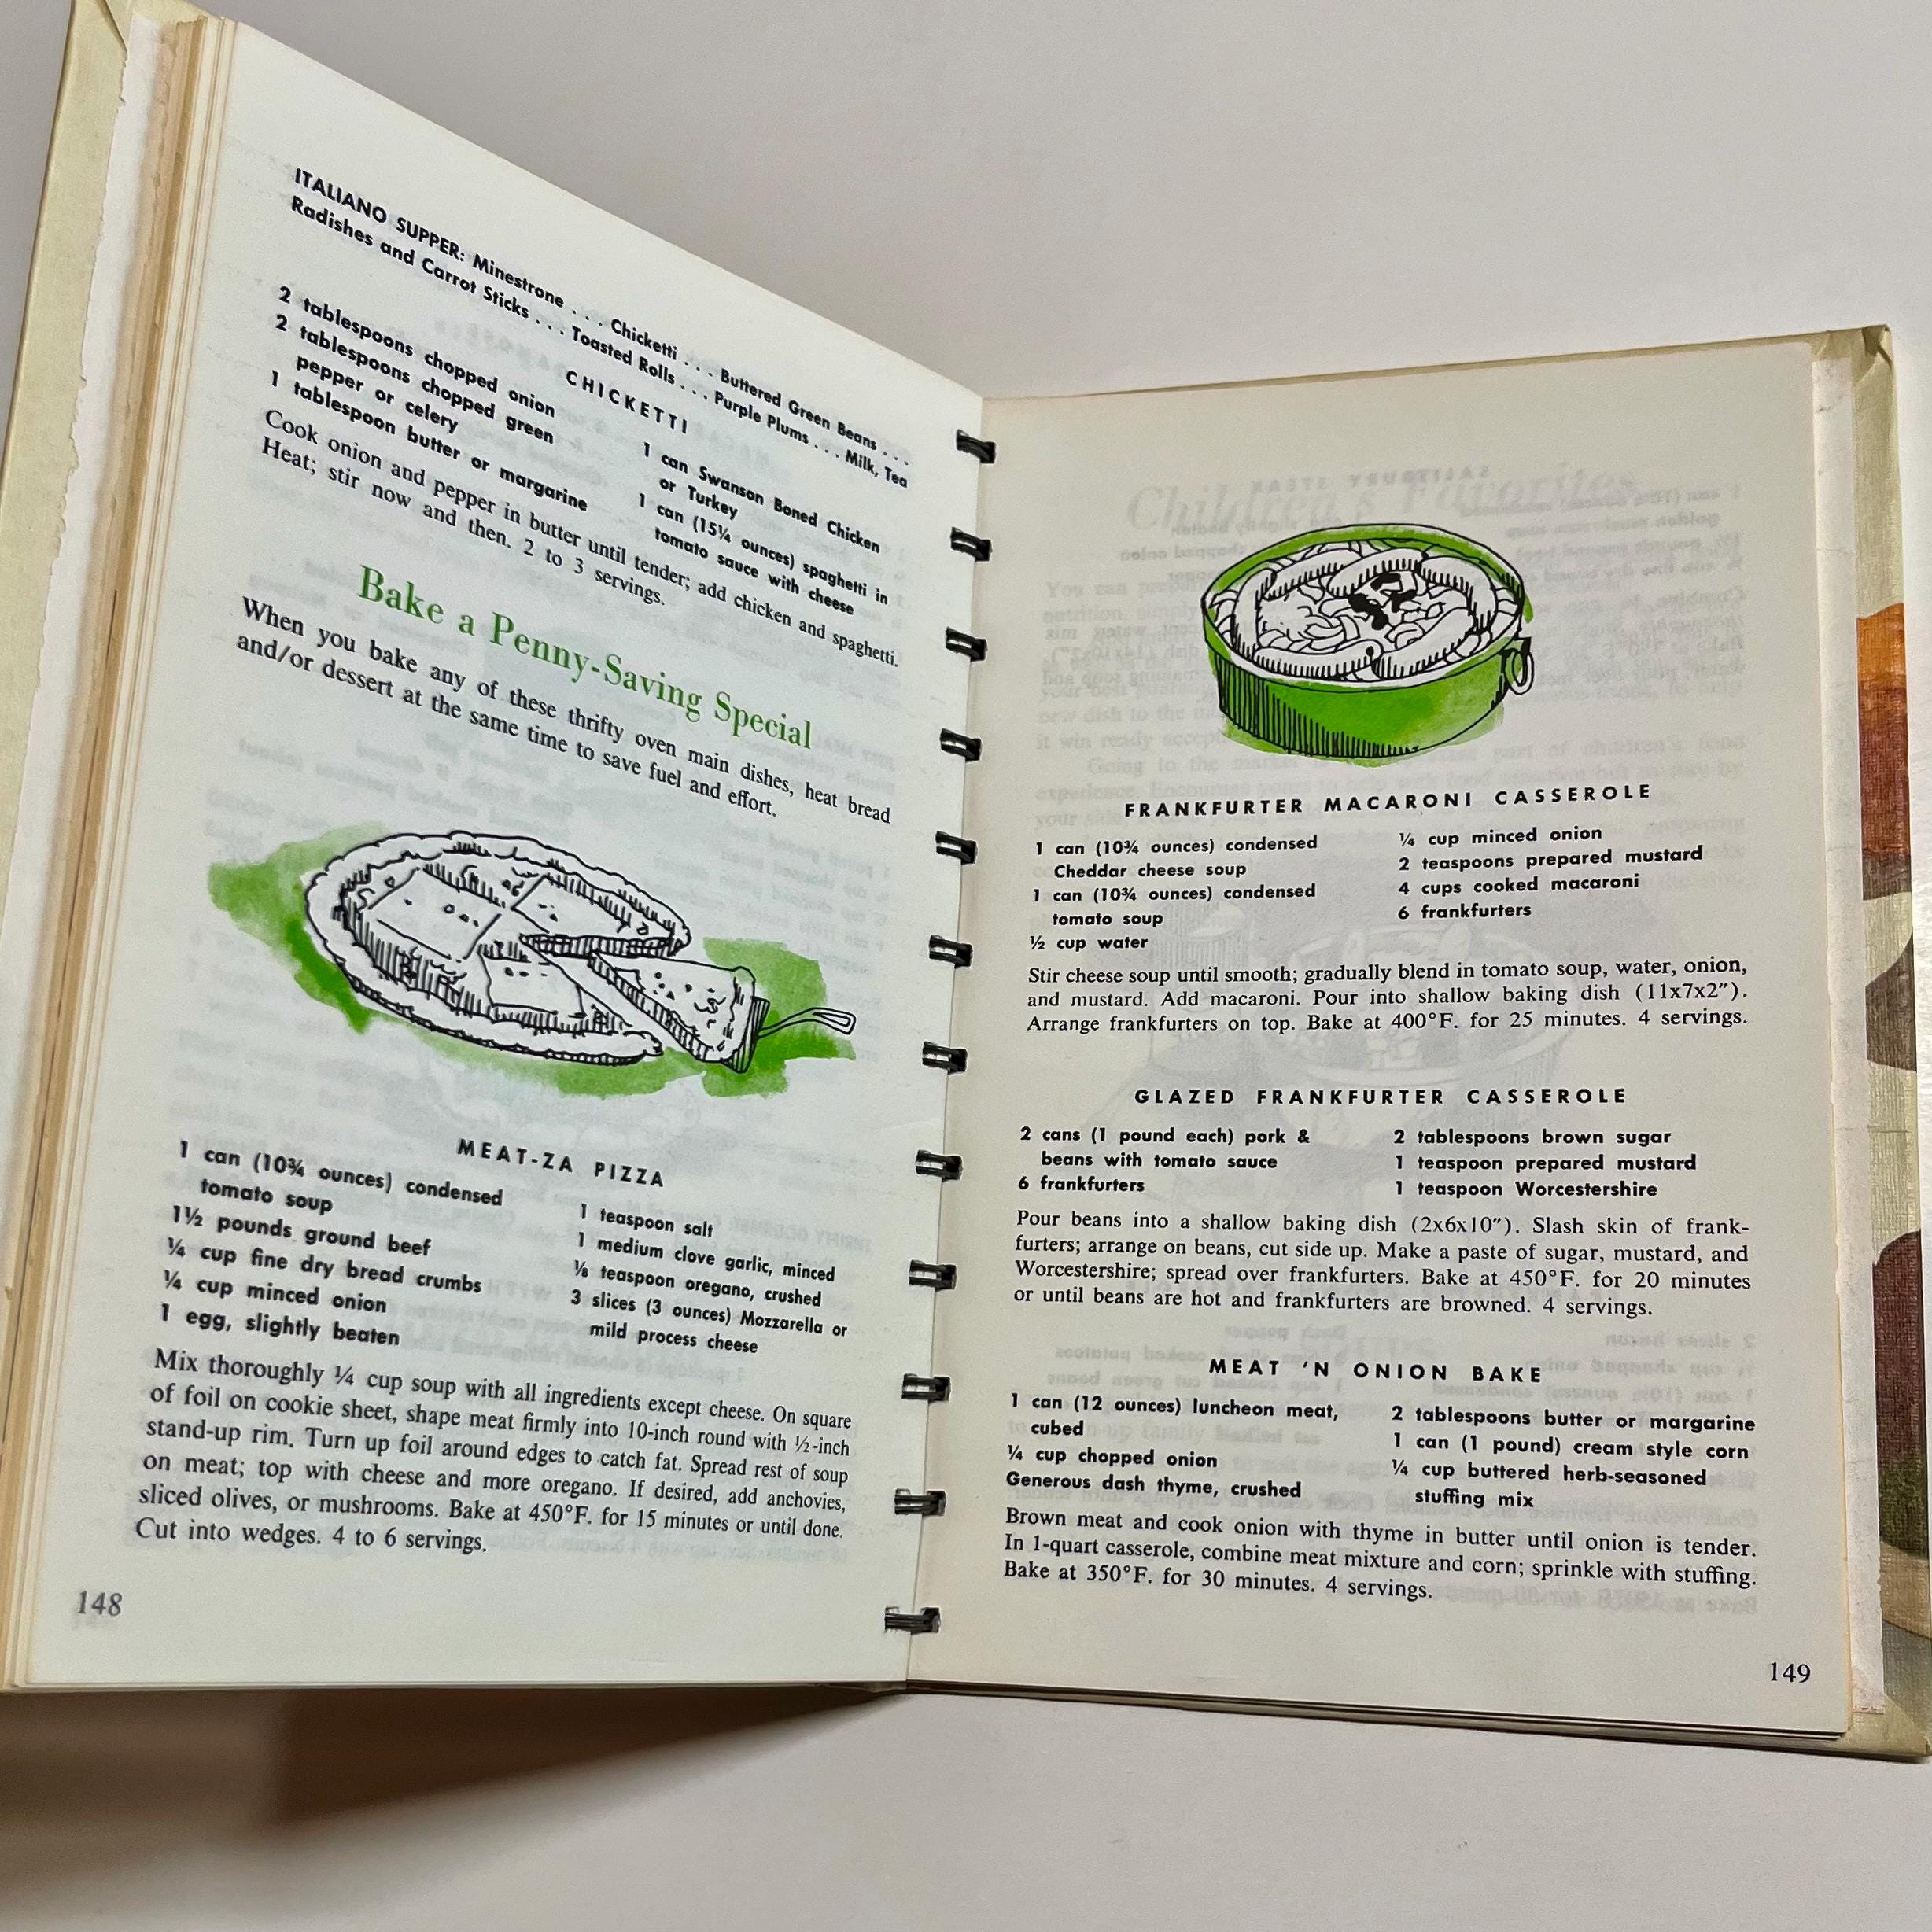 ITALIANO SUPPER: Minestrone . . . Chicketti . . . Buttered Green Beans . . .
Radishes and Carrot Sticks . . . Toasted Rolls . . . Purple Plums . . . Milk, Tea
CHICKETTI
2 tablespoons chopped onion
2 tablespoons chopped green
pepper or celery
1 tablespoon butter or margarine
1 can Swanson Boned Chicken
or Turkey
1 can (15¼ ounces) spaghetti in
tomato sauce with cheese
Cook onion and pepper in butter until tender; add chicken and spaghetti.
Heat; stir now and then. 2 to 3 servings.
Bake a Penny-Saving Special
When you bake any of these thrifty oven main dishes, heat bread
and/or dessert at the same time to save fuel and effort.
MEAT-ZA PIZZA
1 can (10¾ ounces) condensed
tomato soup
1½ pounds ground beef
¼ cup fine dry bread crumbs
¼ cup minced onion
1 egg, slightly beaten
1 teaspoon salt
1 medium clove garlic, minced
⅛ teaspoon oregano, crushed
3 slices (3 ounces) Mozzarella or
mild process cheese
Mix thoroughly ¼ cup soup with all ingredients except cheese. On square
of foil on cookie sheet, shape meat firmly into 10-inch round with ½-inch
stand-up rim. Turn up foil around edges to catch fat. Spread rest of soup
on meat; top with cheese and more oregano. If desired, add anchovies,
sliced olives, or mushrooms. Bake at 450°F. for 15 minutes or until done.
Cut into wedges. 4 to 6 servings.
148
FRANKFURTER MACARONI CASSEROLE
1 can (10¾ ounces) condensed
Cheddar cheese soup
1 can (10¾ ounces) condensed
tomato soup
½ cup water
¼ cup minced onion
2 teaspoons prepared mustard
4 cups cooked macaroni
6 frankfurters
Stir cheese soup until smooth; gradually blend in tomato soup, water, onion,
and mustard. Add macaroni. Pour into shallow baking dish (11x7x2″).
Arrange frankfurters on top. Bake at 400°F. for 25 minutes. 4 servings.
GLAZED FRANKFURTER CASSEROLE
2 cans (1 pound each) pork &
beans with tomato sauce
6 frankfurters
2 tablespoons brown sugar
1 teaspoon prepared mustard
1 teaspoon Worcestershire
Pour beans into a shallow baking dish (2x6x10″). Slash skin of frank-
furters; arrange on beans, cut side up. Make a paste of sugar, mustard, and
Worcestershire; spread over frankfurters. Bake at 450°F. for 20 minutes
or until beans are hot and frankfurters are browned. 4 servings.
MEAT 'N ONION BAKE
1 can (12 ounces) luncheon meat,
cubed
¼ cup chopped onion
Generous dash thyme, crushed
2 tablespoons butter or margarine
1 can (1 pound) cream style corn
¼ cup buttered herb-seasoned
stuffing mix
Brown meat and cook onion with thyme in butter until onion is tender.
In 1-quart casserole, combine meat mixture and corn; sprinkle with stuffing.
Bake at 350°F. for 30 minutes. 4 servings.
149